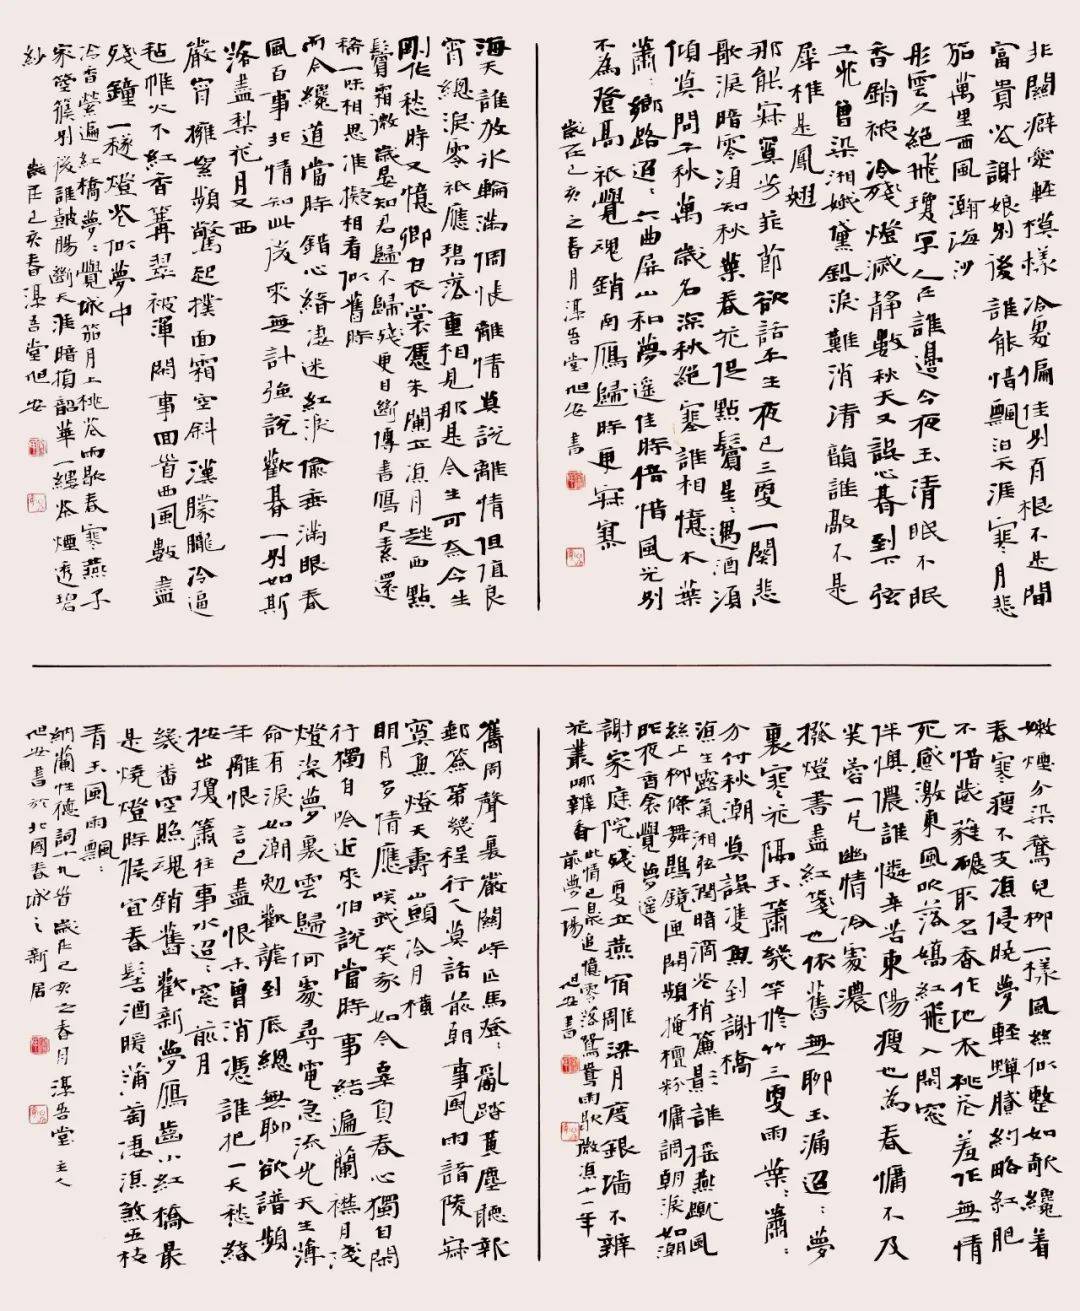 非關癖愛輕模樣冷處偏佳別有根不是間
富貴花謝娘別後誰能惜飄泊天涯寒月悲
笳萬里西風瀚海沙
彤雲久絕飛瓊字人在誰邊今夜玉清眠不眠
香銷被冷殘燈滅靜數秋天又誤心期到下弦
土花曾染湘娥黛鉛淚難消清韻誰敲不是
犀椎是鳳翹
那能寂寞芳菲節欲話平生夜已三更一闋悲
歌淚暗零須知秋葉春花促點鬢星星遇酒須
傾莫問千秋萬歲名深秋絕塞誰相憶木葉
蕭蕭鄉路迢迢六曲屏山和夢遙佳時倍惜風光別
不為登高祇覺魂銷南雁歸時更寂寥
歲在己亥之春月淳吾堂旭安書
海天誰放冰輪滿惆悵離情莫說離情但值良
宵總淚零祇應碧落重相見那是今生可奈今生
剛作愁時又憶卿白衣裳憑朱闌立涼月趖西點
鬢霜微歲晏知君歸不歸殘更目斷傳書雁尺素還
稀一味相思准擬相看似舊時
而今纔道當時錯心緒淒迷紅淚偷垂滿眼春
風百事非情知此後來無計強說歡期一別如斯
落盡梨花月又西
嚴宵擁絮頻驚起撲面霜空斜漢朦朧冷逼
氈帷火不紅香篝翠被渾閒事回首西風數盡
殘鐘一穟燈花似夢中
冷香縈遍紅橋夢夢覺城笳月上桃花雨歇春寒燕子
家箜篌別後誰鼓腸斷天涯暗損韶華一縷茶煙透碧
紗 歲在己亥春淳吾堂旭安
嫩煙分染鵝兒柳一樣風絲似整如欹纔着
春寒瘦不支涼侵曉夢輕蟬膩約略紅肥
不惜葳蕤碾取名香作地衣桃花羞作無情
死感激東風吹落嬌紅飛入閒窗
伴懊儂誰憐辛苦東陽瘦也為春慵不及
芙蓉一片幽情冷處濃
撥燈書盡紅箋也依舊無聊玉漏迢迢夢
裏寒花隔玉簫幾竿修竹三更雨葉葉蕭蕭
分付秋潮莫誤雙魚到謝橋
涼生露氣湘弦潤暗滴花梢簾影誰搖燕蹴風
絲上柳條舞鵾鏡匣開頻掩檀粉慵調朝淚如潮
昨夜香衾覺夢遙
謝家庭院殘更立燕宿雕梁月度銀墻不辨
花叢哪辨香此情已是追憶零落鴛鴦雨歇微涼十一年
前夢一場 旭安書
巂周聲裏嚴關峙匹馬登登亂踏黃塵聽報
郵籤第幾程行人莫話前朝事風雨諸陵寂
寞魚燈天壽山頭冷月橫
明月多情應笑我笑我如今辜負春心獨自閒
行獨自吟近來怕說當時事結遍蘭襟月淺
燈深夢裏雲歸何處尋電急流光天生薄
命有淚如潮勉歡謔到底總無聊欲譜頻
年離恨言已盡恨未曾消憑誰把一天愁緒
按出瓊簫往事水迢迢窗前月
幾番空照魂銷舊歡新夢雁齒小紅橋最
是燒燈時候宜春髻酒暖蒲萄淒涼煞五枝
青玉風雨飄飄
納蘭性德詞十九首歲在己亥之春月淳吾堂主人
旭安書於北國春城之新居